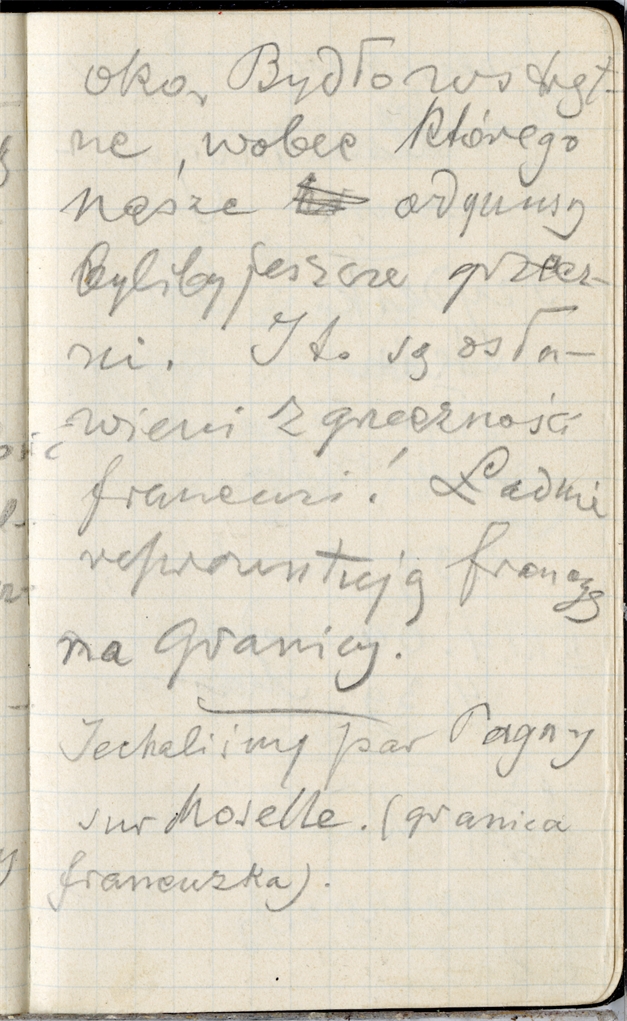 oko, Bydło wstręt-
ne, wobec którego
nasze ordynusy
byliby jeszcze grzecz-
ni. I to są osła-
wieni z grzeczności
francuzi! Ładnie
reprezentują francyę
na granicy.
Jechaliśmy par Pagny
sur Moselle. (granica
francuzka).